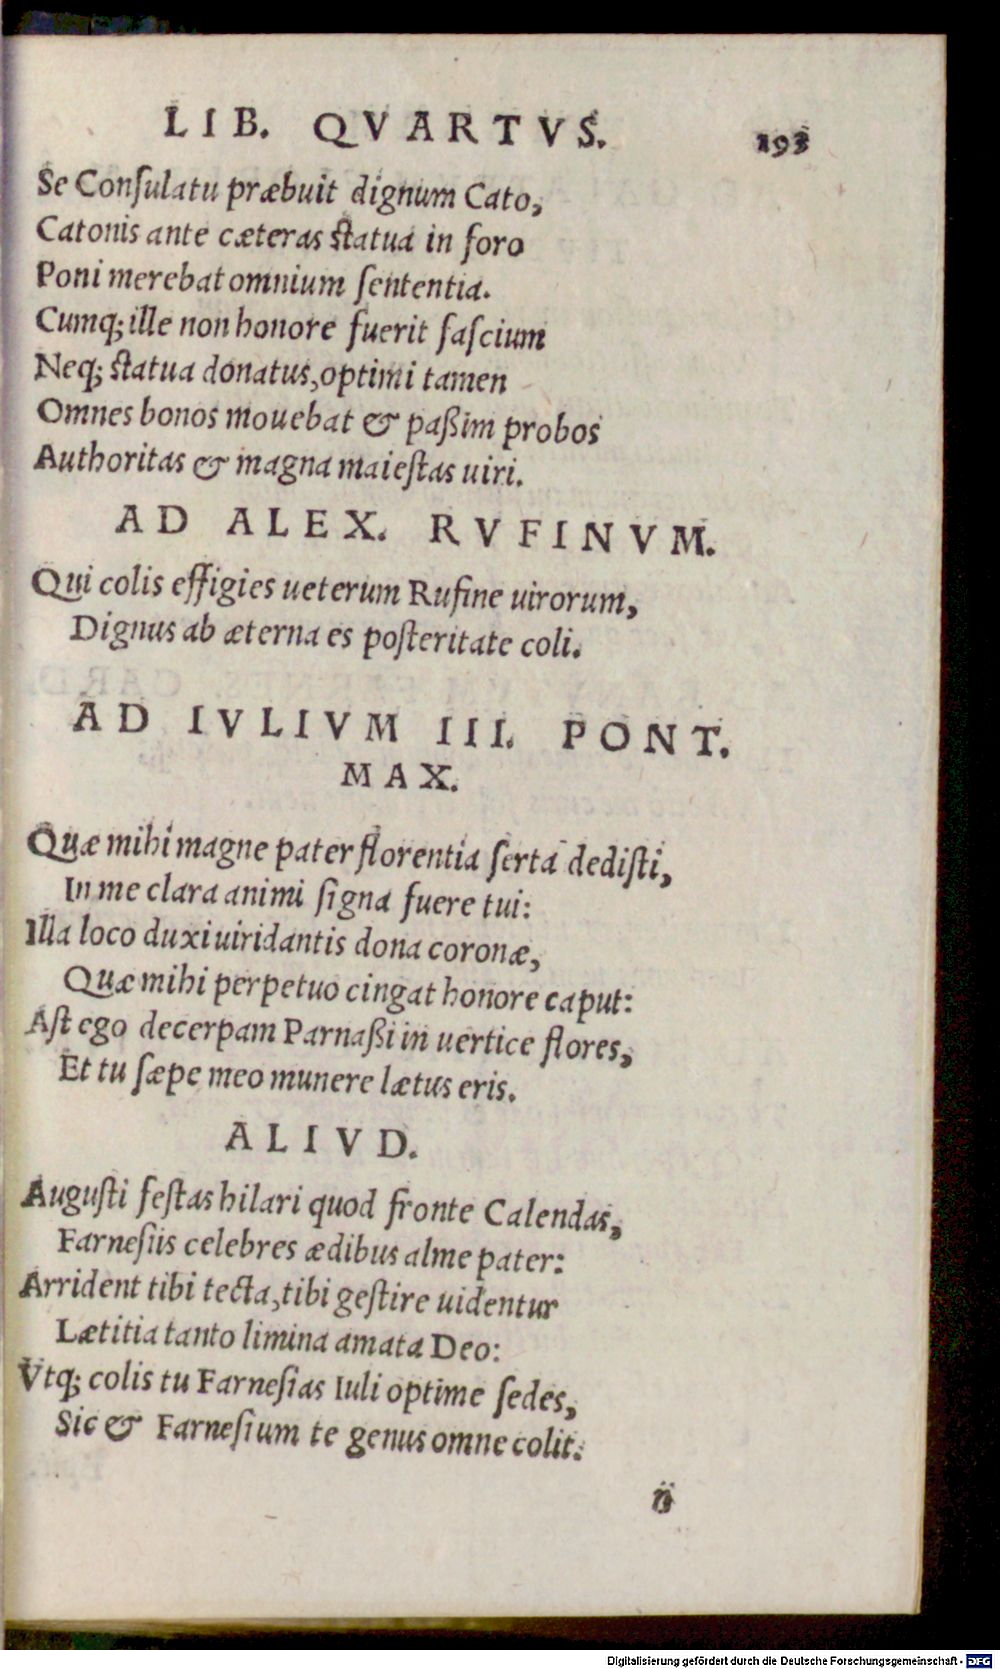 LIB. QVARTVS. 193
Se Conſulatu præbuit dignum Cato,
Catonis ante cæteras ſtatua in foro
Poni merebat omnium ſententia.
Cumq; ille non honore fuerit faſcium
Neq; ſtatua donatus, optimi tamen
Omnes bonos mouebat & paßim probos
Authoritas & magna maieſtas uiri.
AD ALEX. RVFINVM.
Qui colis effigies ueterum Rufine uirorum,
Dignus ab æterna es poſteritate coli.
AD IVLIVM III. PONT.
MAX.
Quæ mihi magne pater florentia ſerta dediſti,
In me clara animi ſigna fuere tui:
Illa loco duxi uiridantis dona coronæ,
Quæ mihi perpetuo cingat honore caput:
Aſt ego decerpam Parnaßi in uertice flores,
Et tu ſæpe meo munere lætus eris.
ALIVD.
Auguſti feſtas hilari quod fronte Calendas,
Farneſiis celebres ædibus alme pater:
Arrident tibi tecta, tibi geſtire uidentur
Lætitia tanto limina amata Deo:
Vtq; colis tu Farneſias Iuli optime ſedes,
Sic & Farneſium te genus omne colit.
Digitalisierung gefördert durch die Deutsche Forschungsgemeinschaft - DFG